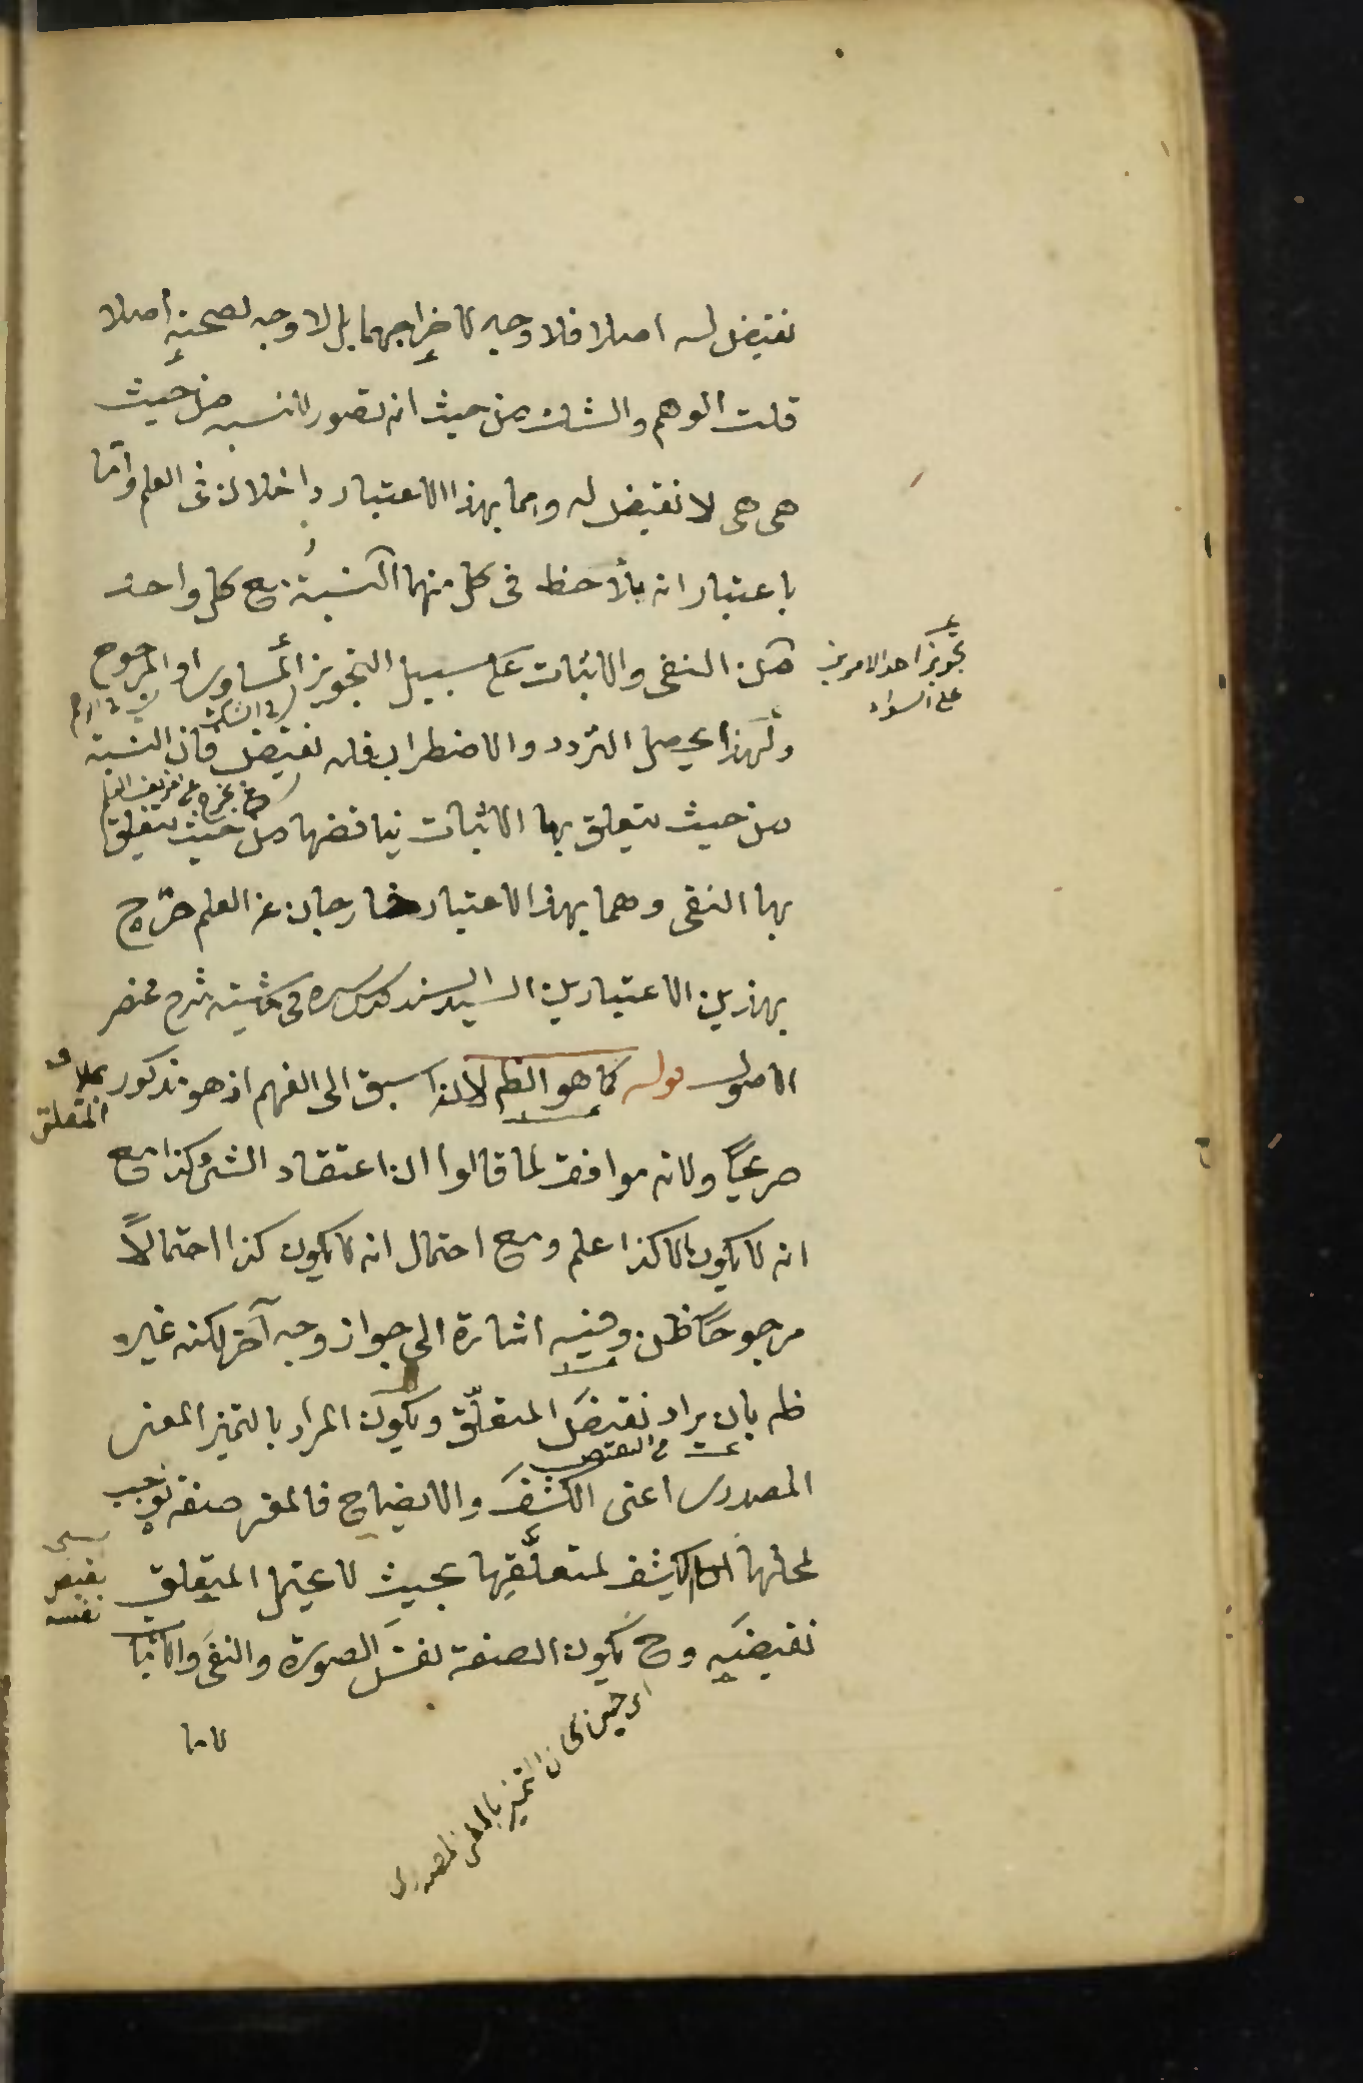 نقيض له اصلا فلا وجه لاخراجهما بل لا وجه لصحته اصلا
قلت الوهم والشك من حيث انه تصور للنسبه من حيث
هى هى لا نقيض له وهما بهذا الاعتبار داخلان فى العلم واما
باعتبار انه يلاحظ فى كل منهما النسبة مع كل واحد
من النفى والاثبات على سبيل التجويز المساوى او المرجوح
تجويز احد الامرين
على السواء
ولهذا يحصل التردد والاضطراب فله نقيض فان النسبة
فى الشك
من حيث يتعلق بها الاثبات يناقضها من حيث يتعلق
بها النفى وهما بهذا الاعتبار خارجان عن العلم صرح
بهذين الاعتبارين السيد السند قدس سره فى حاشيته شرح مختصر
الاصول قوله كما هو الظم لانه اسبق الى الفهم اذ هو مذكور
بخلاف
المتعلق
صريحًا ولانه موافق لما قالوا ان اعتقاد الشئ كذا مع
انه لا يكون الا كذا علم ومع احتمال انه لا يكون كذا احتمالاً
مرجوحًا ظن وفيه اشارة الى جواز وجه آخر لكنه غير
ظم بان يراد نقيض المتعلّق ويكون المراد بالتميز المعنى
المصدرى اعنى الكشف والايضاح فالمعنى صفة توجب
لمحلها كشف لمتعلّقها بحيث لا يحتمل المتعلق
نقيض
نفسه
نقيضَه وح يكون الصفة نفسَ الصورة والنفى والاثبا
لا ما
اى حين كان التميز بالمعنى المصدرى